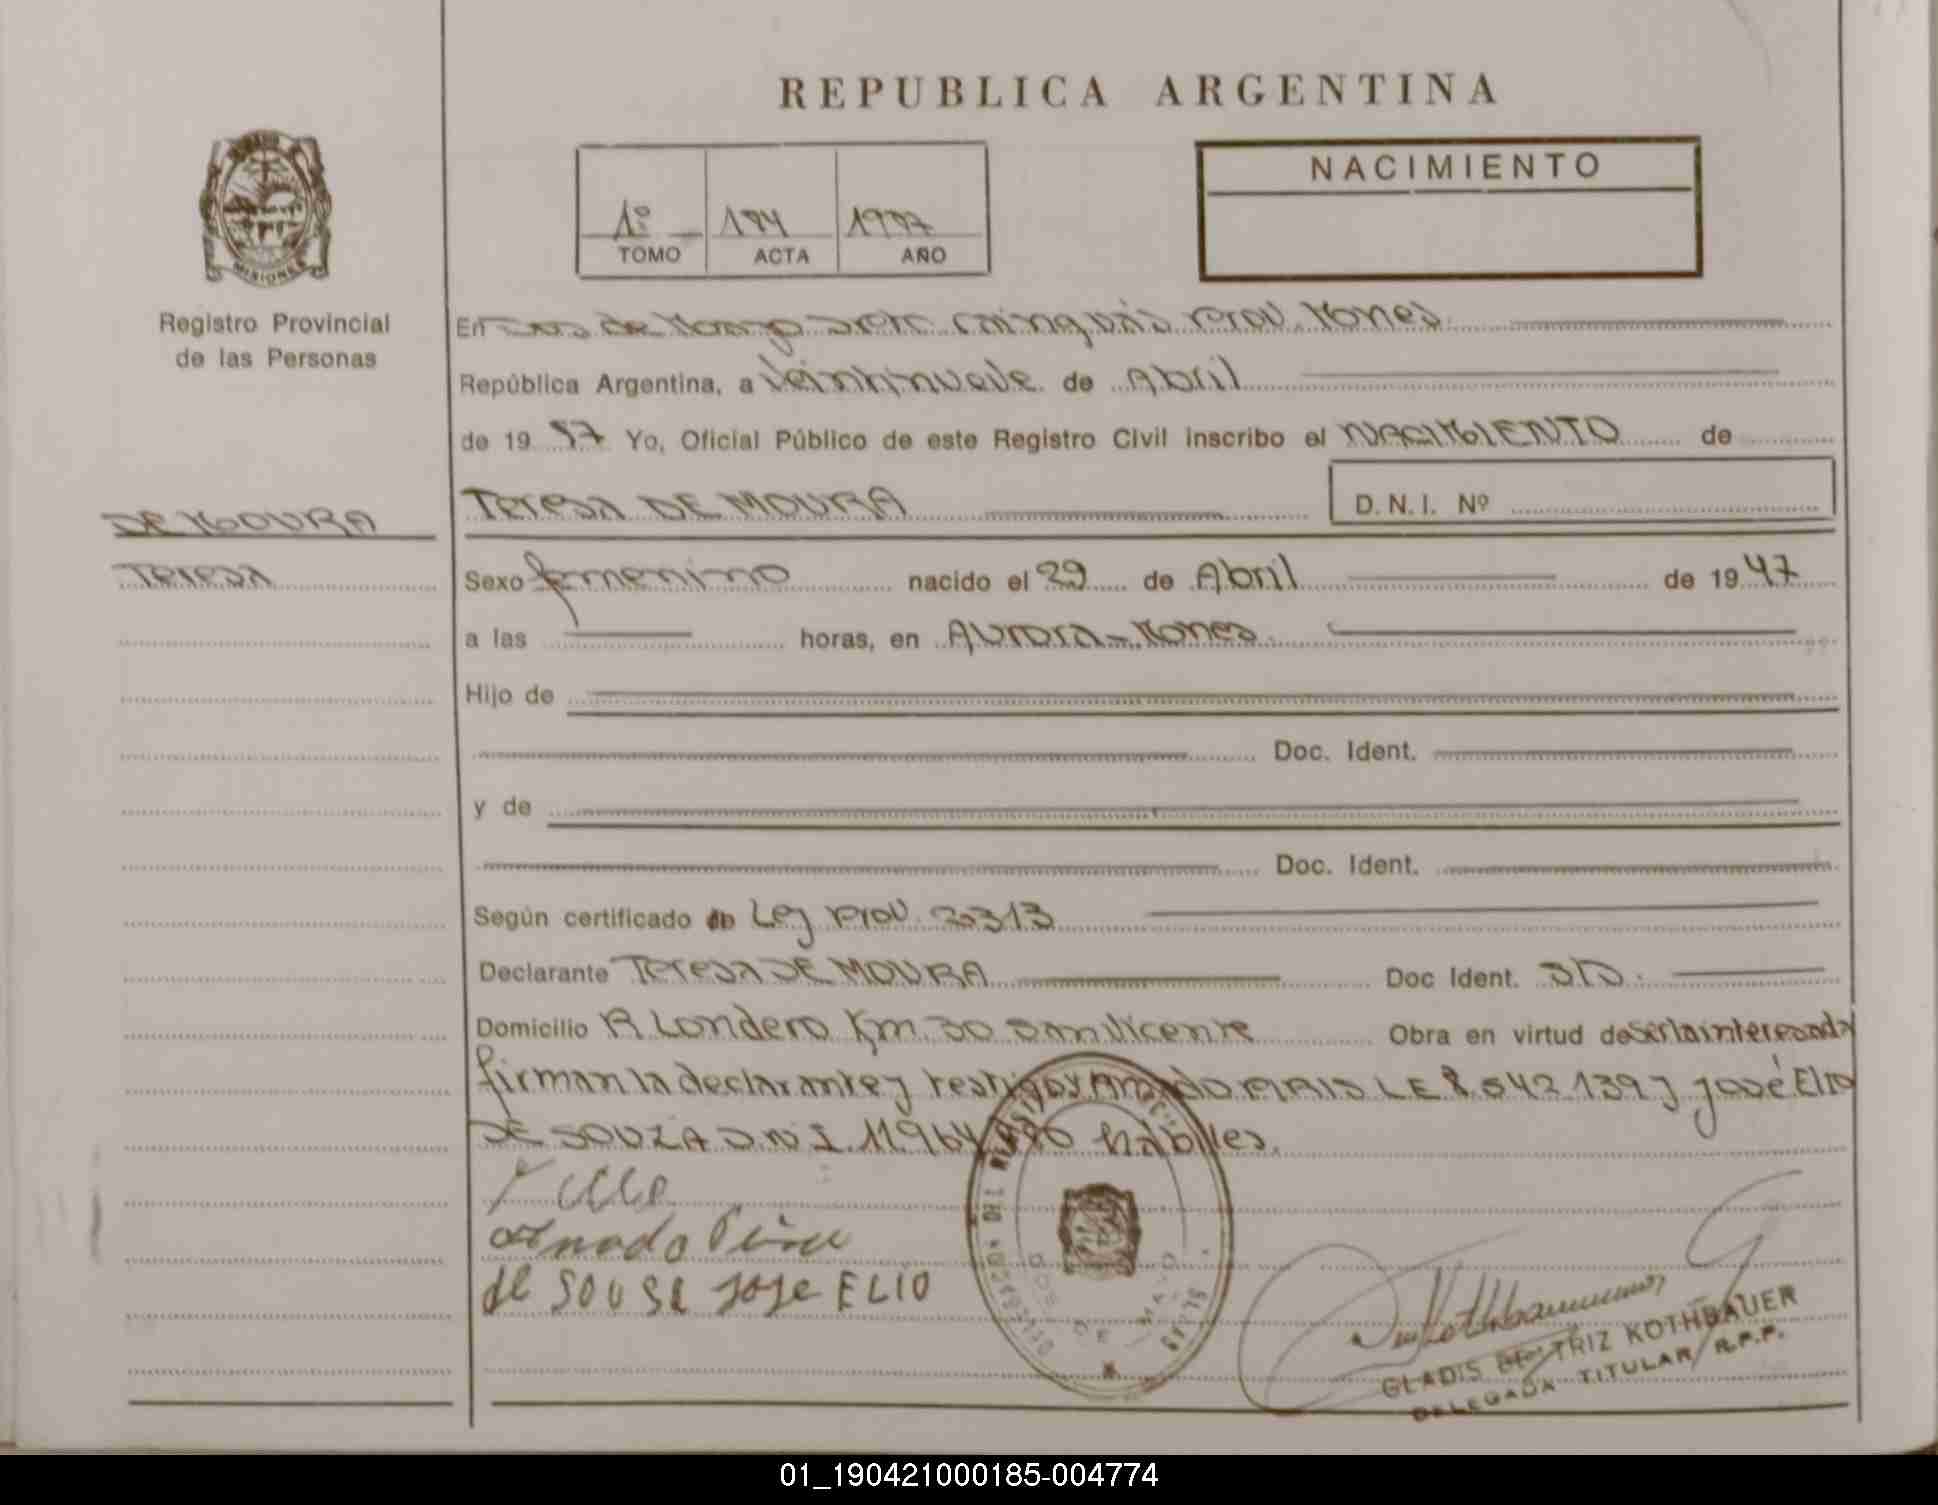 REPUBLICA ARGENTINA
NACIMIENTO
1º
TOMO ACTA AÑO
MISIONES
Registro Provincial
de las Personas
En Dos de Mayo Dpto. Cainguás Prov. Mnes.
República Argentina, a Veintinueve de Abril
de 19 87 Yo, Oficial Público de este Registro Civil inscribo el NACIMIENTO de
DE MOURA
Teresa
Teresa DE MOURA
D. N. I. Nº
Sexo femenino nacido el 29 de Abril de 19 47
a las horas, en Aurora - Mnes.
Hijo de
Doc. Ident.
y de
Doc. Ident.
Según certificado Ley Prov. 2313
Declarante Teresa DE MOURA Doc Ident. S/D.
Domicilio A Londero Km. 30 San Vicente Obra en virtud de ser la interesada
firman la declarante y testigos AMADO PIRIS LE 8.542.139 y José Elio
DE SOUZA D.N.I. 11.964 hábiles.
de SOUSA Jose ELIO
DOS DE MAYO
GLADIS BEATRIZ KOTHBAUER
DELEGADA TITULAR R.P.P.
01_190421000185-004774